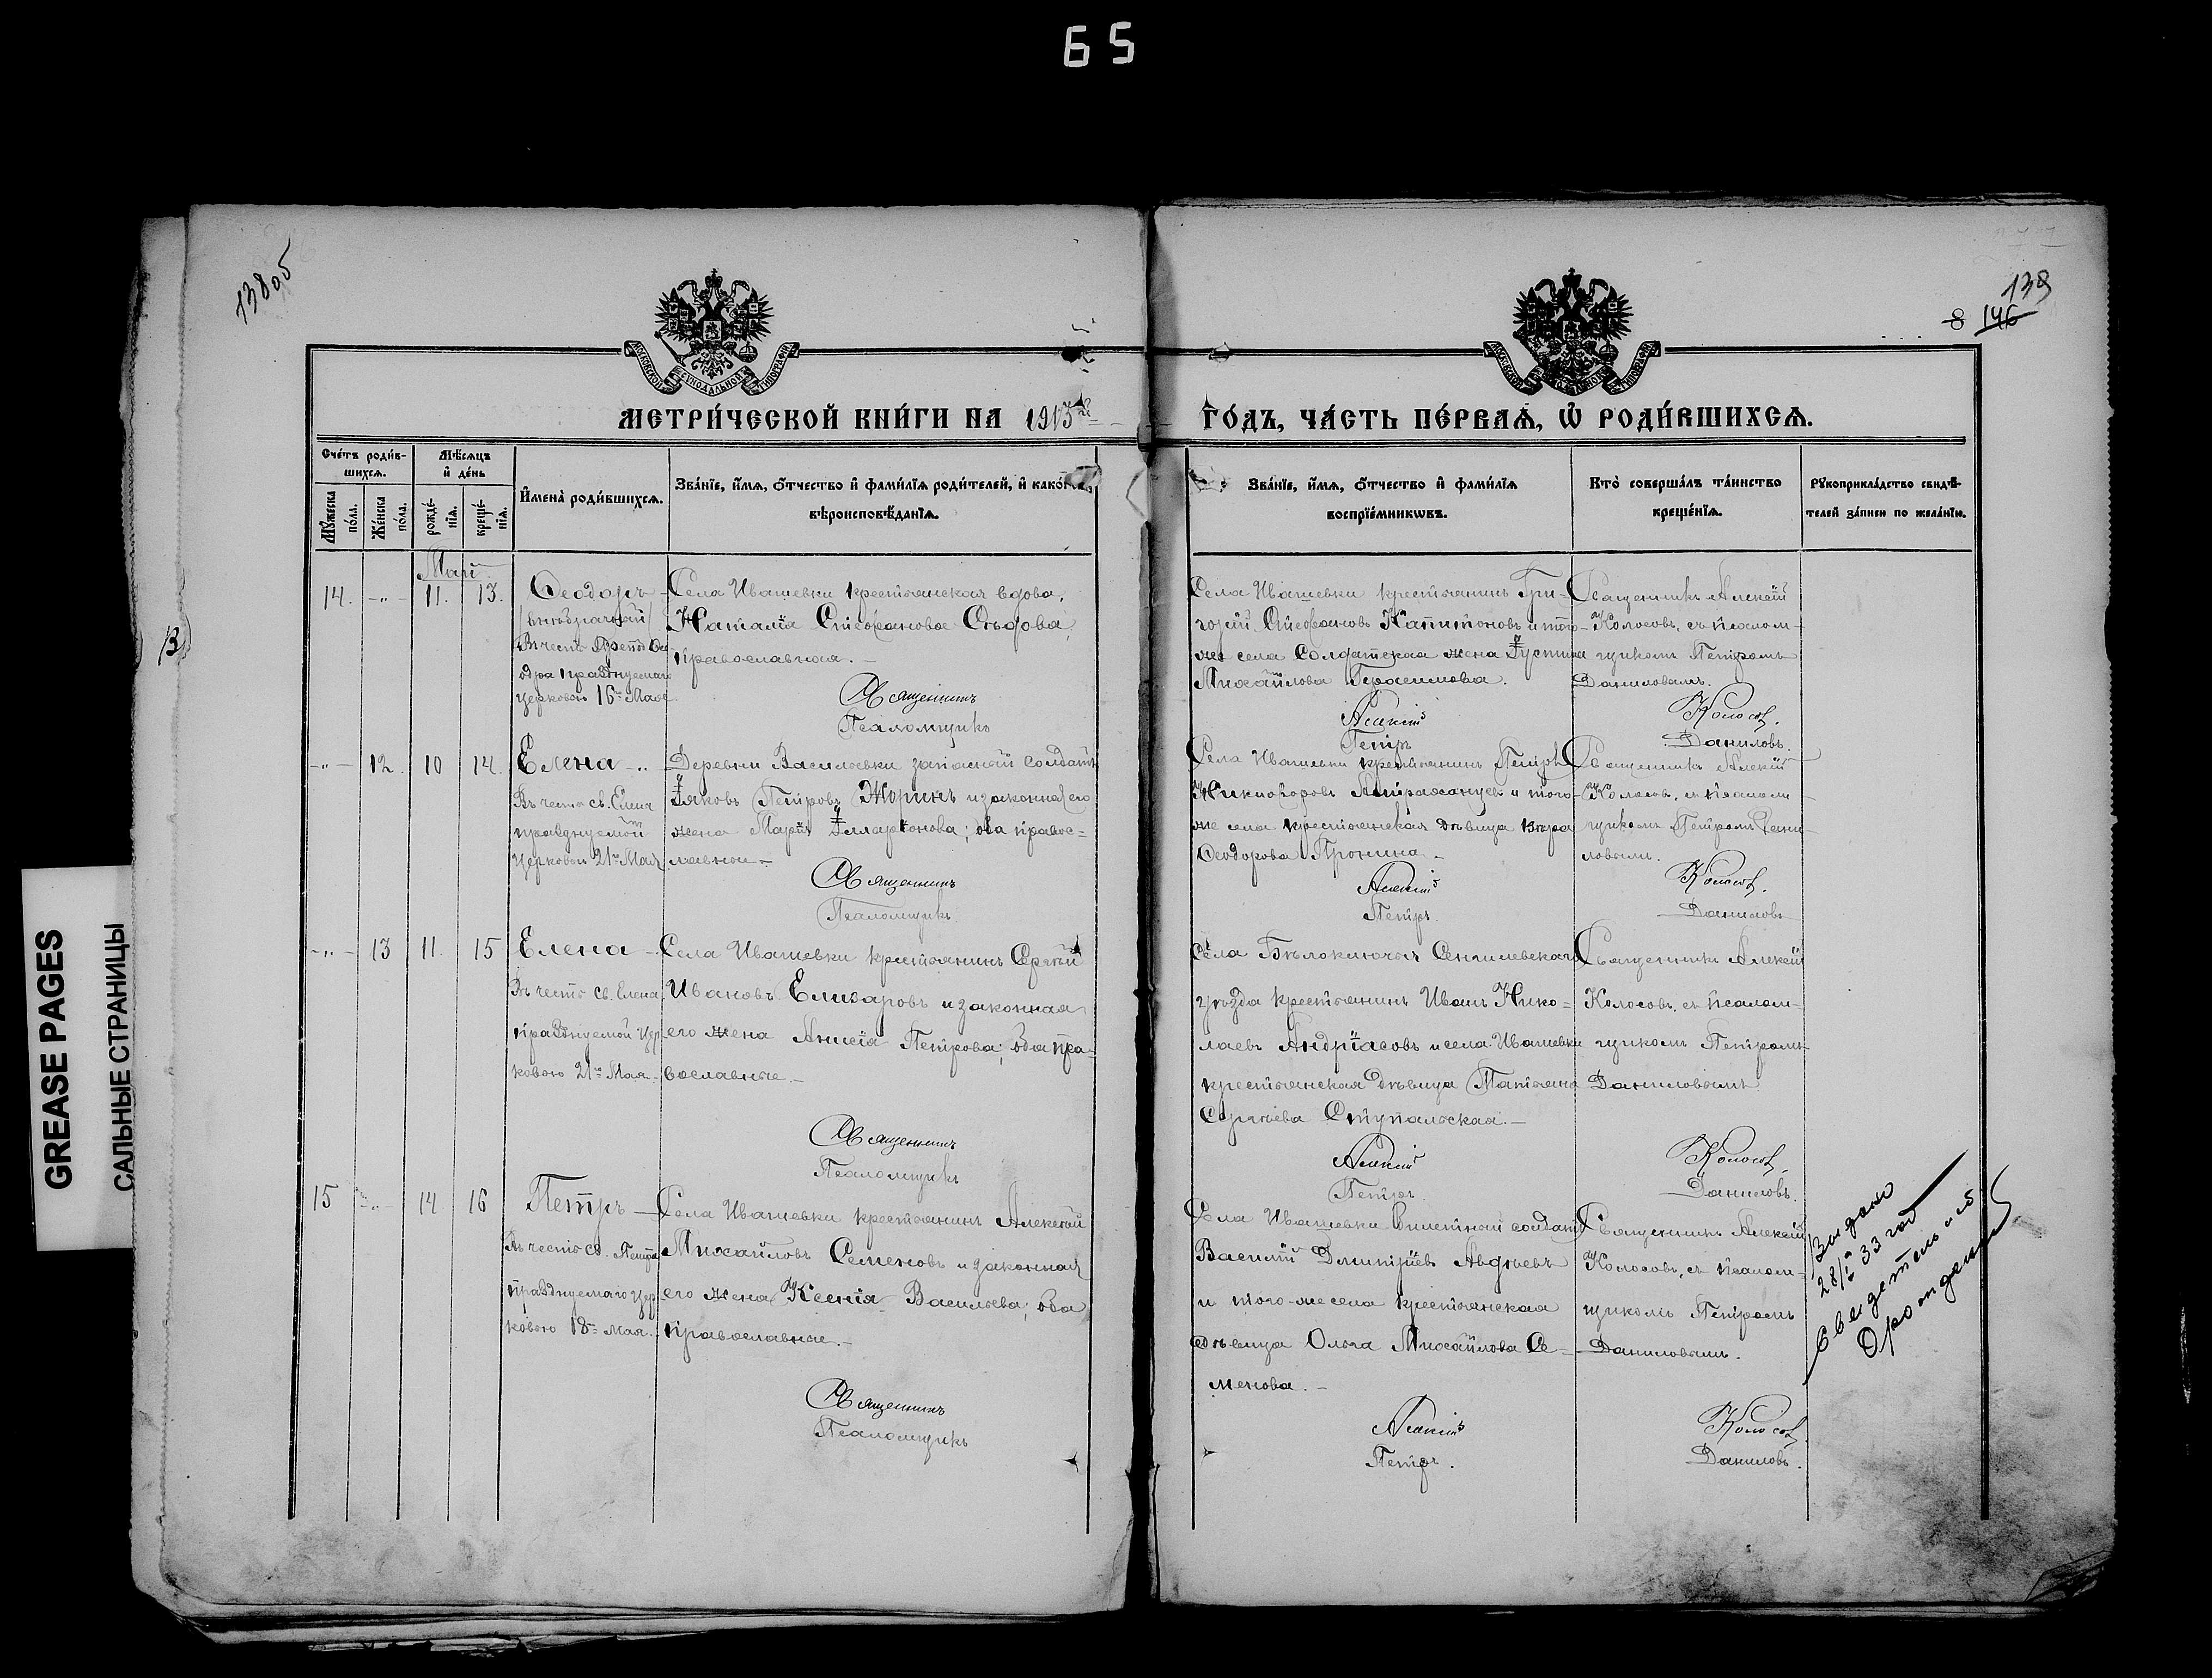 65
138 об
139
8 146
МОСКОВСКОЙ СѴНОДАЛЬНОЙ ТИПОГРАФІИ
МОСКОВСКОЙ СѴНОДАЛЬНОЙ ТИПОГРАФІИ
МЕТРИ́ЧЕСКОЙ КНИ́ГИ НА 1913 го
ГО́ДЪ, ЧА́СТЬ ПЕ́РВАѦ, Ѽ РОДИ́ВШИХСѦ.
Сче́тъ роди́в-
шихсѧ.
Мѣ́сѧцъ
и҆ де́нь
Мꙋ́жеска
по́ла.
Же́нска
по́ла.
рожде́-
нїѧ.
креще́-
нїѧ.
И҆мена̀ роди́вшихсѧ.
Зва́нїе, и҆́мѧ, ѻ҆́тчество и҆ фами́лїѧ роди́телей, и҆ како́гѡ
вѣроисповѣ́данїѧ.
Зва́нїе, и҆́мѧ, ѻ҆́тчество и҆ фами́лїѧ
воспрїе́мникѡвъ.
Кто̀ соверша́лъ та́инство
креще́нїѧ.
Рꙋкоприкла́дство свидѣ́-
телей за́писи по жела́нїю.
Май
14. -„- 11. 13.
Ѳеодоръ
/внѣбрачный/
Въ честь Препод. Ѳе-
одра празднуемаго
церковью 16го Мая
Села Ивашевки крестьянская вдова,
Наталія Стефановва Сѣдова,
православная.-
Священникъ
Псаломщикъ
Села Ивашевки крестьянинъ Гри-
горій Стефановъ Капитоновъ и того-
же села Солдатская жена Іустина
Михайлова Герасимова.
Алексій
Петръ
Священникъ Алексій
Колосовъ, съ псалом-
щикомъ Петромъ
Даниловымъ.
Колосов.
Даниловъ.
-„- 12. 10 14.
Елена -„
Въ честь св. Елены
празднуемой
Церковью 21го Мая
Деревни Василевки запасный солдатъ
Іаковъ Петровъ Жоринъ и законная его
жена Марія Илларіонова; оба правос=
лавные.-
Священникъ
Псаломщикъ
Села Ивашевки крестьянинъ Петръ
Никифоровъ Астраханцевъ и того-
же села крестьянская дѣвица Вѣра
Ѳеодорова Пронина.-
Алексій
Петръ.
Священникъ Алексій
Колосовъ, съ псалом-
щикомъ Петромъ Дани-
ловымъ.
Колосов.
Даниловъ
-„- 13 11. 15
Елена
Въ честь св. Елены,
празднуемой Цер-
ковью 21го Мая.-
Села Ивашевки крестьянинъ Сергѣй
Ивановъ Елизаровъ и законная
его жена Анисія Петрова; оба пра-
вославные.-
Священникъ
Псаломщикъ
Села Бѣлоключья Сенгилевскаго
уѣзда крестьянинъ Иванъ Нико=
лаевъ Андріасовъ и села Ивашевки
крестьянская дѣвица Татьяна
Сергѣева Ступальская.-
Алексій
Петръ.
Священникъ Алексій
Колосовъ, съ псалом-
щикомъ Петромъ
Даниловымъ
Колосов.
Даниловъ.
15 -„- 14 16
Петръ
Въ честь св. Петра
празднуемаго Цер-
ковью 18го мая.
Села Ивашевки крестьянинъ Алексѣй
Михайловъ Семеновъ и законная
его жена Ксенія Васильева; оба
православные.-
Священникъ
Псаломщикъ
Села Ивашевки билетный солдатъ
Василій Димитріевъ Авдѣевъ
и того-же села крестьянская
дѣвица Ольга Михайлова Се-
менова.-
Алексій
Петръ.
Священникъ Алексій
Колосовъ, съ псалом-
щикомъ Петромъ
Даниловымъ.
Колосов.
Даниловъ.
Выдано
33 год
Свидетельство
О рождении
GREASE PAGES
САЛЬНЫЕ СТРАНИЦЫ